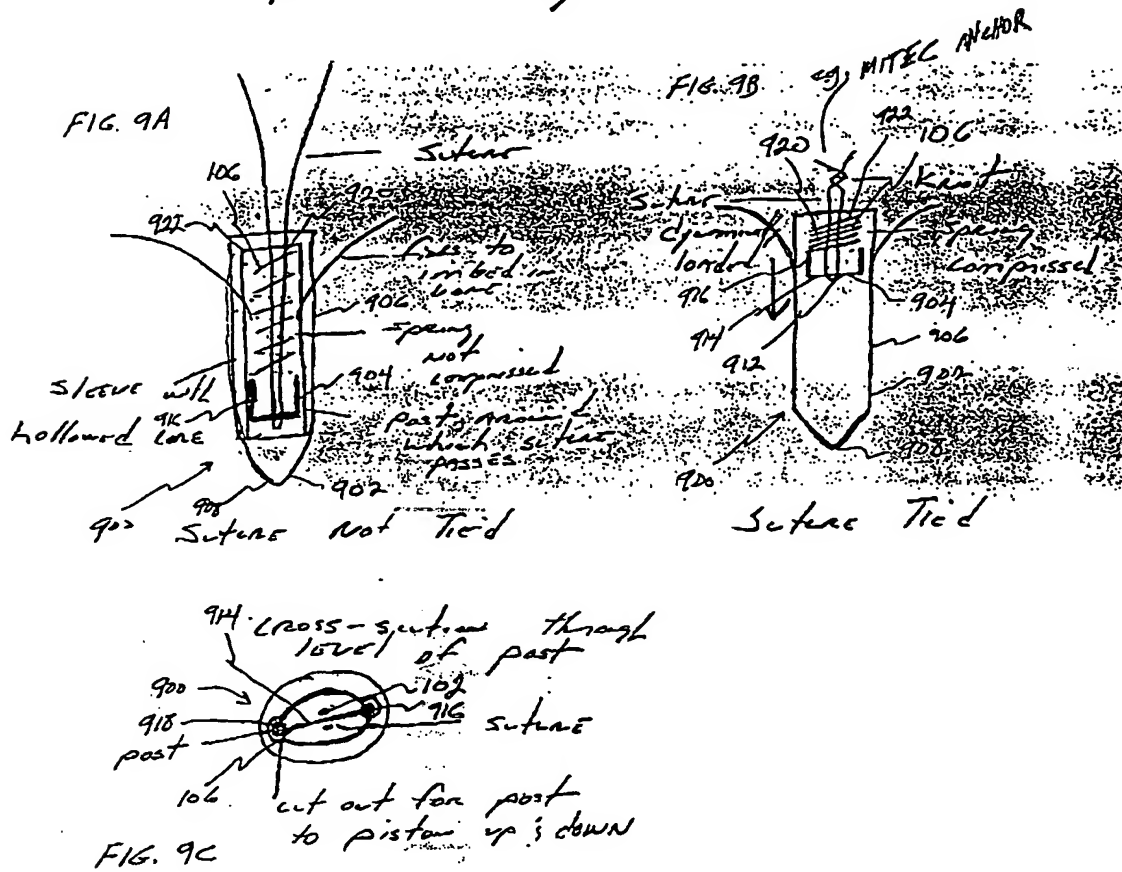 FIG. 9A
Suture
106
920
922
fins to
imbed in
bone
906
Spring
not
compressed
904
SLEEVE with
hollowed core
916
post around
which suture
passes
902
908
902
Suture Not Tied
FIG. 9B
e.g. MITEC ANCHOR
922
920
106
Knot
Suture
Spring
compressed
916
914
912
904
906
902
908
900
Suture Tied
914
CROSS-section through
level of post
900
102
918
916
post
SUTURE
106
cut out for post
to piston up & down
FIG. 9C